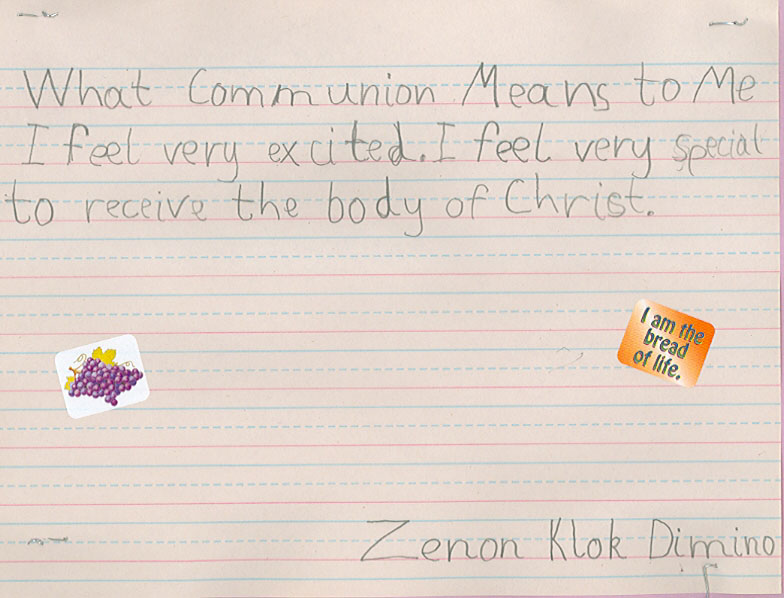 What Communion Means to Me
I feel very excited. I feel very special
to receive the body of Christ.
I am the
bread
of life.
Zenon Klok Dimino